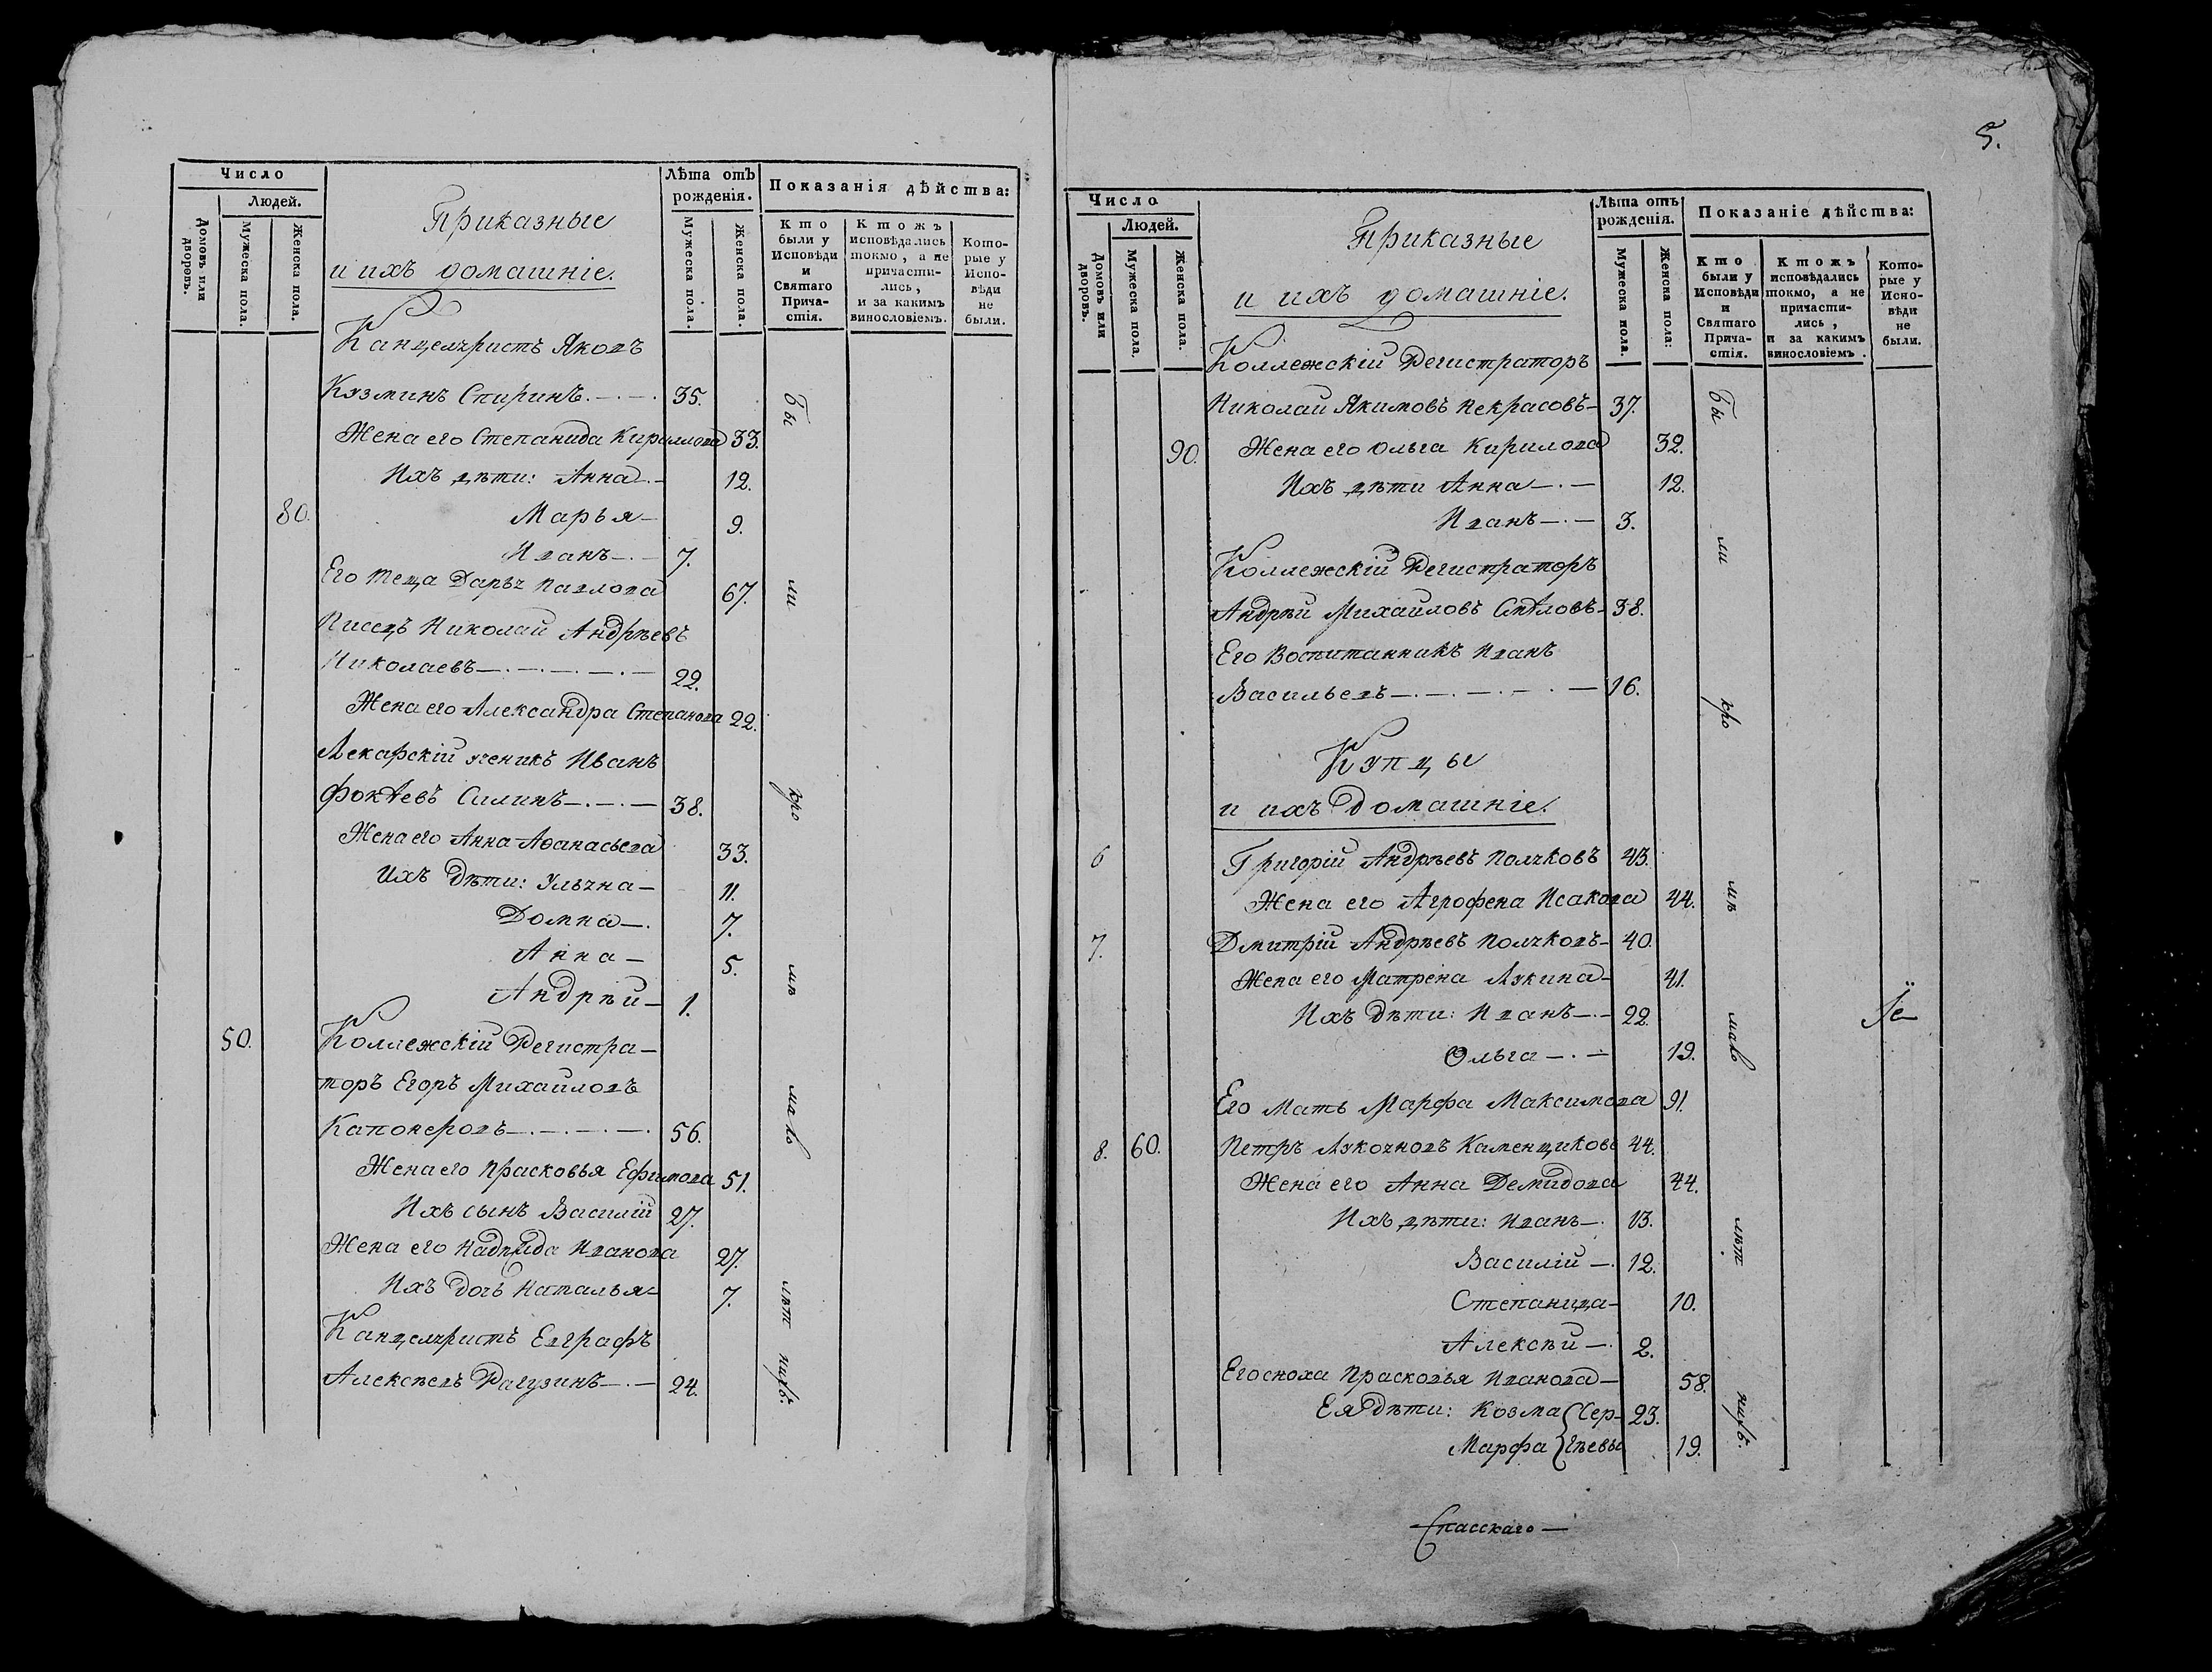 Число
Людей.
Домовъ или дворовъ.
Мужеска пола.
Женска пола.
Приказные
и ихъ домашніе.
Лѣта отъ рожденія.
Мужеска пола.
Женска пола.
Показанія дѣйства:
Кто были у Исповѣди и Святаго Прича-стія.
Ктожъ исповѣдались токмо, а не причасти-лись, и за какимъ винословіемъ.
Кото-рые у Испо-вѣди не были.
Канцеляристъ Яковъ
Кузминъ Спиринъ 35.
Жена его Степанида Кириллова 33.
Ихъ дѣти: Анна 12.
80. Марья 9.
Иванъ 7.
Его теща Дарья Павлова 67.
Писецъ Николай Андрѣевъ
Николаевъ 22.
Жена его Александра Степанова 22.
Лекарскій ученикъ Иванъ
Фокѣевъ Силинъ 38.
Жена его Анна Аѳанасьева 33.
Ихъ дѣти: Ульяна 11.
Домна 7.
Анна 5.
Андрѣй 1.
50. Коллежскій Регистра-
торъ Егоръ Михайловъ
Капонеровъ 56.
Жена его Прасковья Ефимова 51.
Ихъ сынъ Василій 27.
Жена его Надежда Иванова 27.
Ихъ дочь Наталья 7.
Канцеляристъ Евграфъ
Алексѣевъ Рагузинъ 24.
Бы
ли
кро
мѣ
малъ
лѣт
нихъ.
5.
Число
Людей.
Домовъ или дворовъ.
Мужеска пола.
Женска пола.
Приказные
и ихъ домашніе.
Лѣта отъ рожденія.
Мужеска пола.
Женска пола:
Показаніе дѣйства:
Кто были у Исповѣди и Святаго Прича-стія.
Ктожъ исповѣдались токмо, а не причасти-лись, и за какимъ винословіемъ.
Кото-рые у Испо-вѣди не были.
Коллежскій Регистраторъ
Николай Якимовъ Некрасовъ 37.
90. Жена его Ольга Кирилова 32.
Ихъ дѣти Анна 12.
Иванъ 3.
Коллежскій Регистраторъ
Андрѣй Михайловъ 38.
Его Воспитанникъ Иванъ
Васильевъ 16.
Купцы
и ихъ домашніе.
6 Григорій Андрѣевъ Поляковъ 43.
Жена его Агрофена Исакова 44.
7. Дмитрій Андрѣевъ Поляковъ 40.
Жена его Матрена Лукина 41.
Ихъ дѣти: Иванъ 22.
Ольга 19.
Его Мать Марфа Максимова 91.
8. 60. Петръ Лукояновъ Каменщиковъ 44.
Жена его Анна Демидова 44.
Ихъ дѣти: Иванъ 13.
Василій 12.
Степанида 10.
Алексѣй 2.
Его сноха Прасковья Иванова 58.
Ея дѣти: Козма Сер- 23.
Марфа гѣевы 19.
Бы
ли
кро
мѣ
малъ
лѣт
нихъ.
Спасскаго